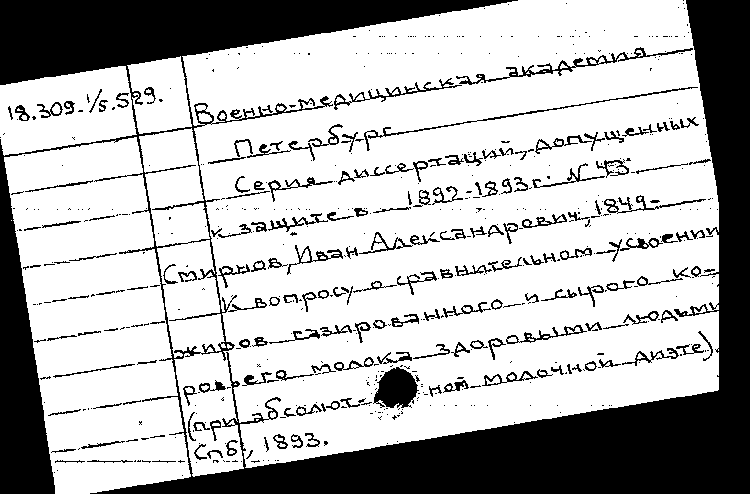 18.309-1/5.529.
Военно-медицинская академия
Петербург
Серия диссертаций, допущенных
к защите в 1892-1893г. N 43.
Смирнов, Иван Александрович, 1849-
К вопросу о сравнительном усвоении
жиров газированного и сырого ко-
ровьего молока здоровыми людьми
(при абсолют- ной молочной диэте).
Спб., 1893.